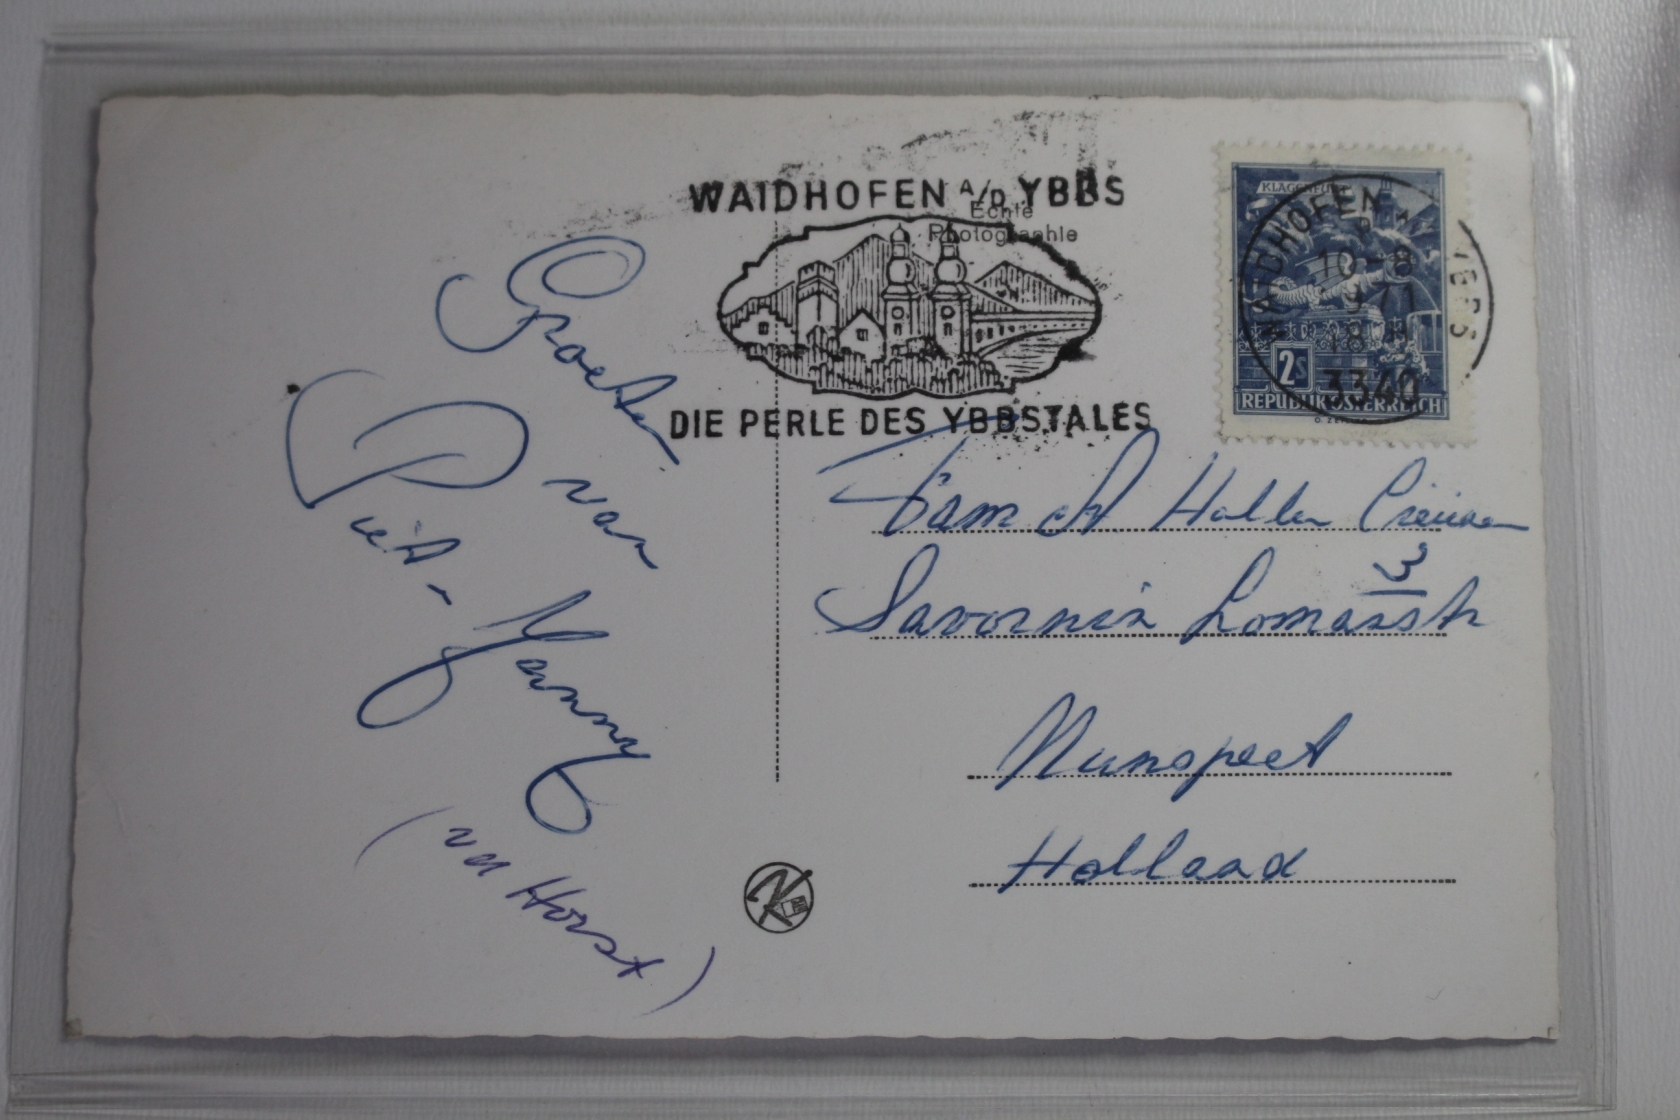 WAIDHOFEN A/D YBBS
Echte
Photographie
DIE PERLE DES YBBSTALES
KLAGENFURT
WAIDHOFEN YBBS
10-8
18
3340
2S
REPUBLIK ÖSTERREICH
Groeten
van
Piet - Janny
(vd Horst)
Fam
Savornin Lomanstr
3
Nunspeet
Holland